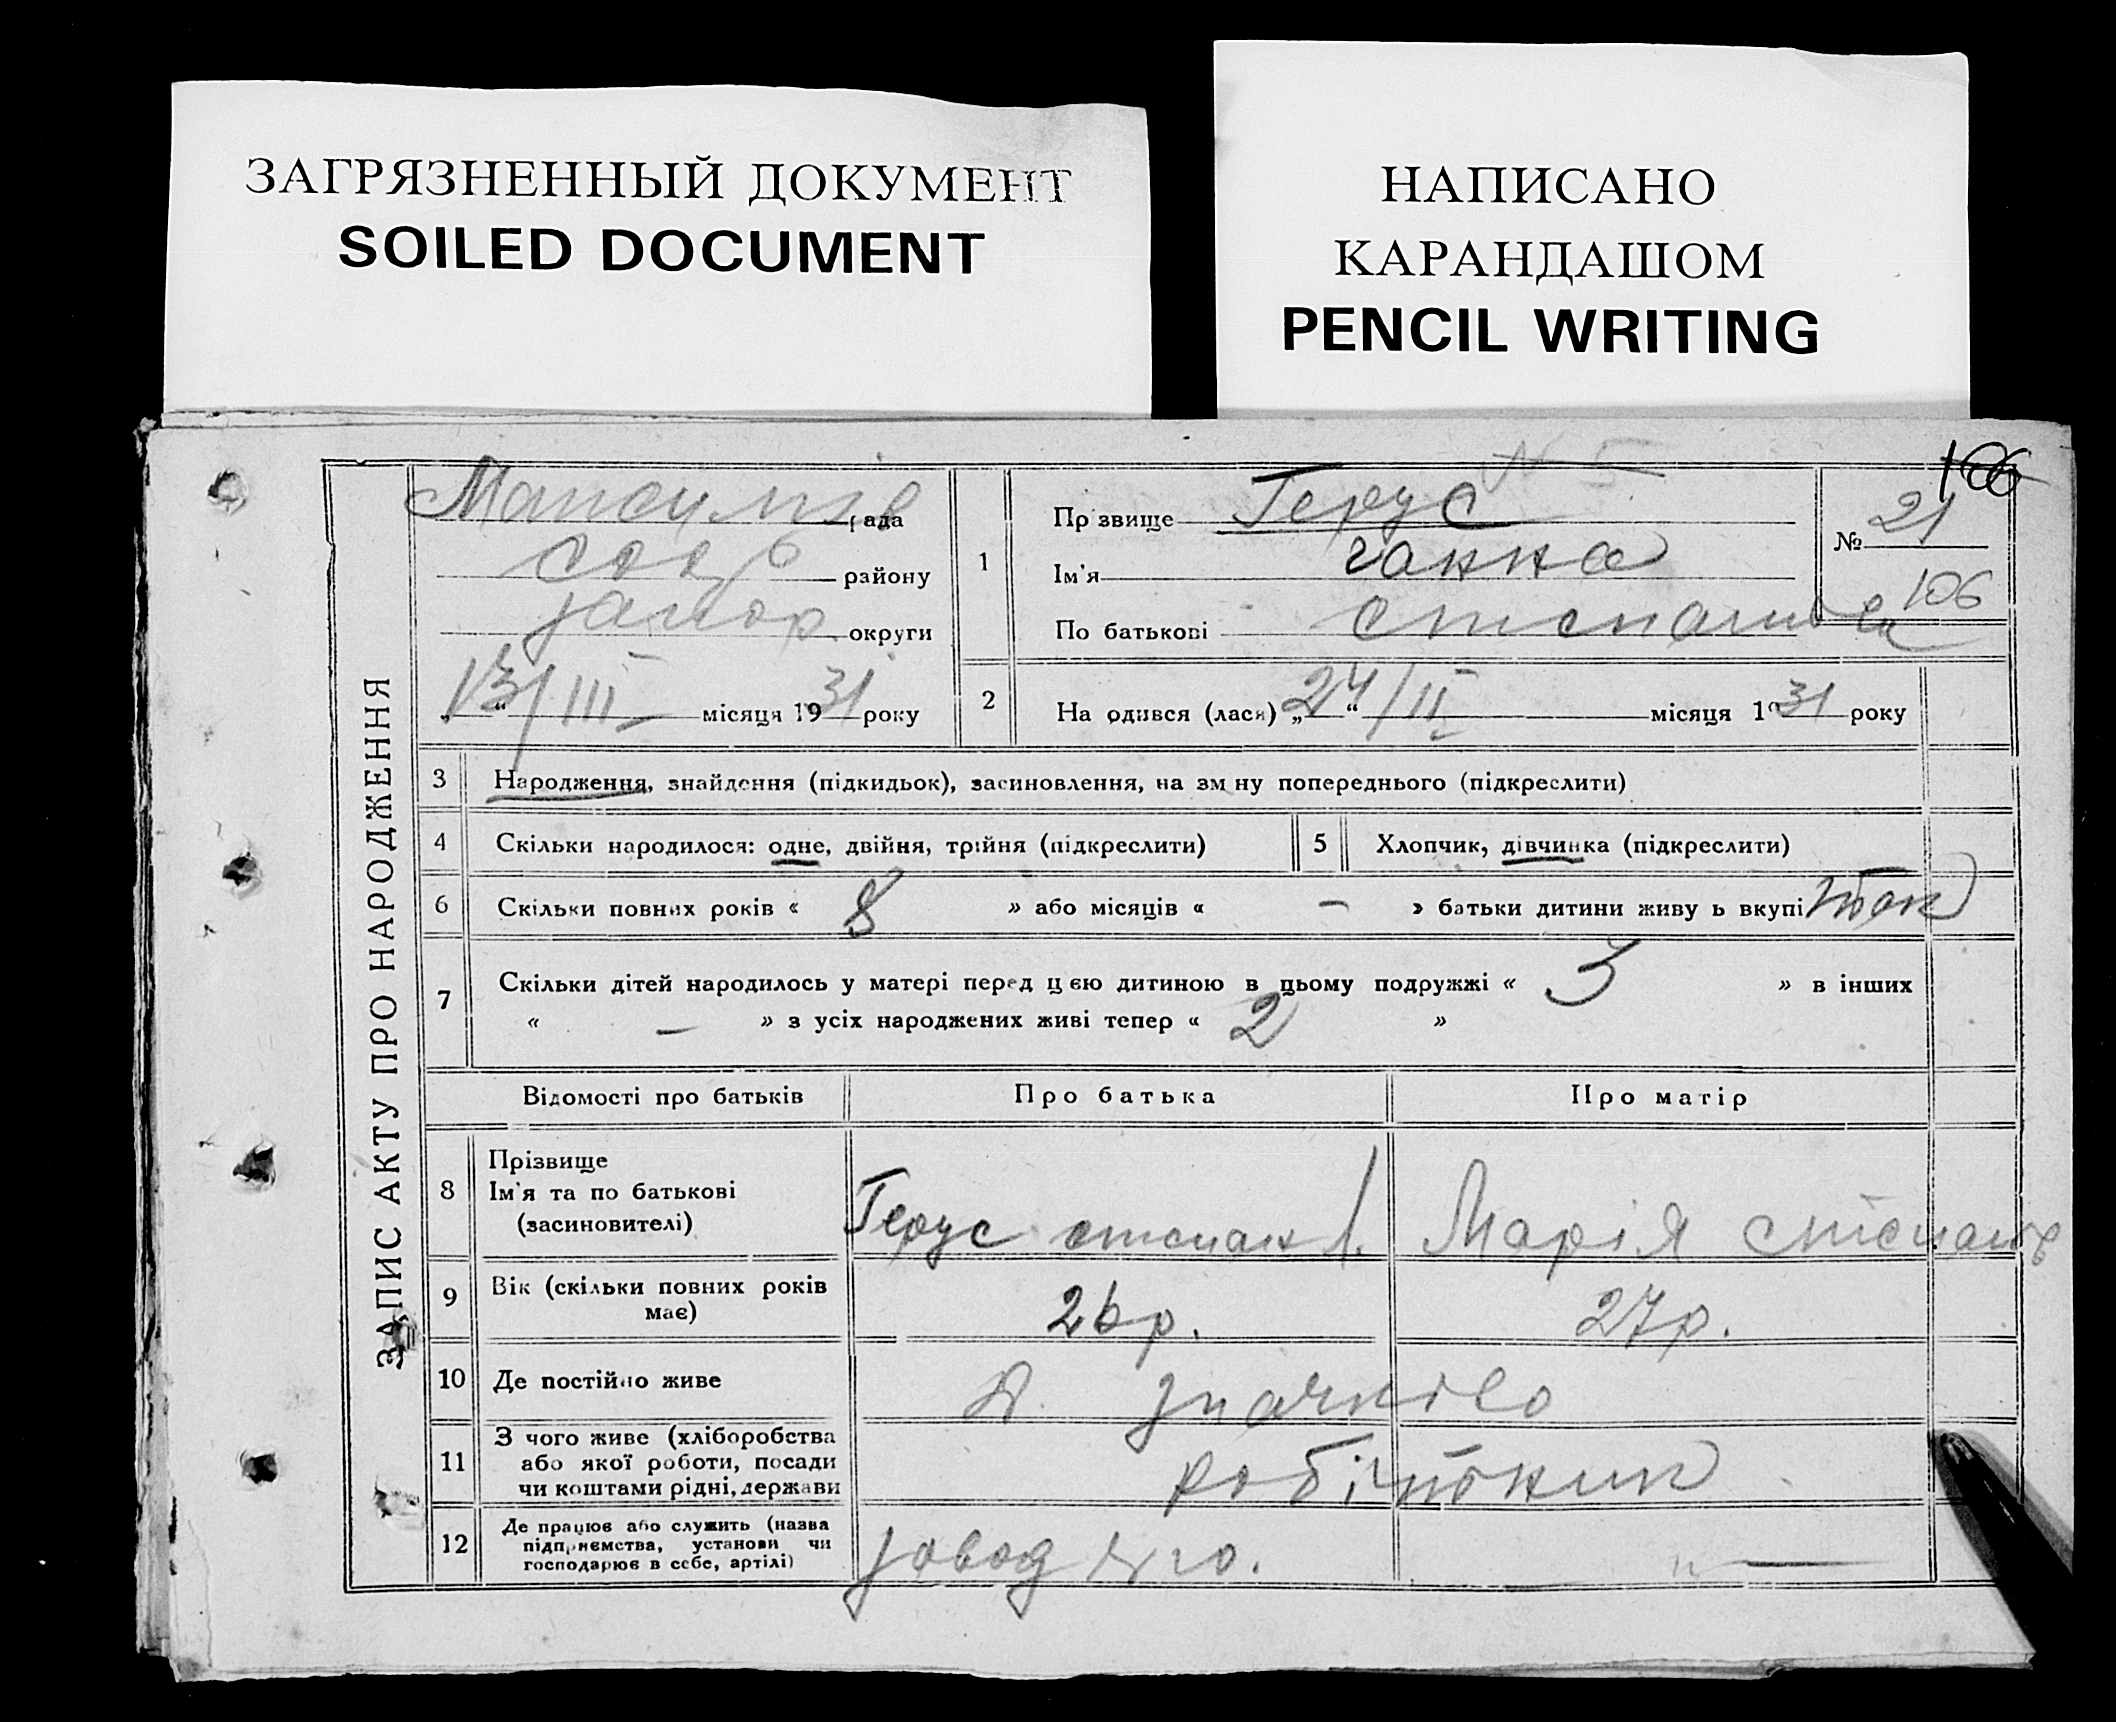 ЗАГРЯЗНЕННЫЙ ДОКУМЕНТ
SOILED DOCUMENT
НАПИСАНО
КАРАНДАШОМ
PENCIL WRITING
ЗАПИС АКТУ ПРО НАРОДЖЕННЯ
№ 5
106
рада
району
округи
13/III місяця 1931 року
1
Прізвище Герус
Ім'я ганна
По батькові степанівна
№ 21
106
2 На одився (лася) „24“/II місяця 1931 року
3 Народження, знайдення (підкидьок), засиновлення, на зм ну попереднього (підкреслити)
4 Скільки народилося: одне, двійня, трійня (підкреслити) 5 Хлопчик, дівчинка (підкреслити)
6 Скільки повних років « 8 » або місяців « – » батьки дитини живу ь вкупі так
7 Скільки дітей народилось у матері перед цією дитиною в цьому подружжі « 3 » в інших
« – » з усіх народжених живі тепер « 2 »
Відомості про батьків Про батька Про матір
8 Прізвище
Ім'я та по батькові
(засиновителі)
Герус степан Марія
9 Вік (скільки повних років
має)
26 р. 27 р.
10 Де постійно живе
11 З чого живе (хліборобства
або якої роботи, посади
чи коштами рідні, держави
робітник
12 Де працює або служить (назва
підприємства, установи чи
господарює в себе, артілі)
завод —